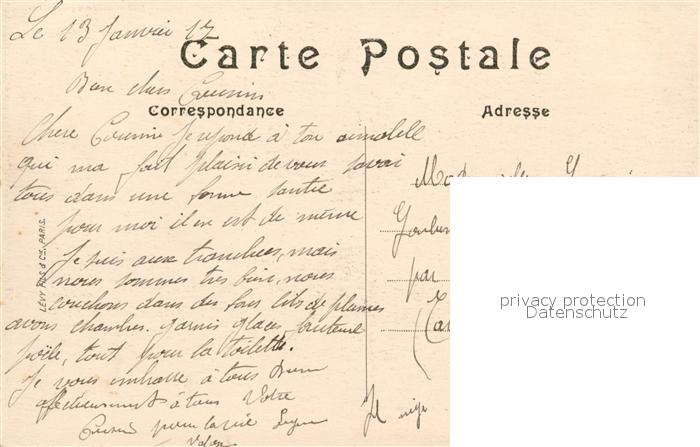 Le 13 Janvier 17
Carte Postale
Bien chers Cousins
Correspondance
Adresse
Chere Cousine Je repond à ton
qui ma fait plaisir de vous savoir
tous dans une bonne santée
pour moi il en est de même
Je suis aux tranchees, mais
nous sommes tres bien, nous
couchons dans des bons lits de plumes
avons chambres garnis glace, fauteuil
poële, tout pour la toilette.
Je vous embrasse à tous Bien
affectueusement à tous Votre
Cousin pour la vie
LEVY FILS & Cie, PARIS.
par
Il neige
privacy protection
Datenschutz